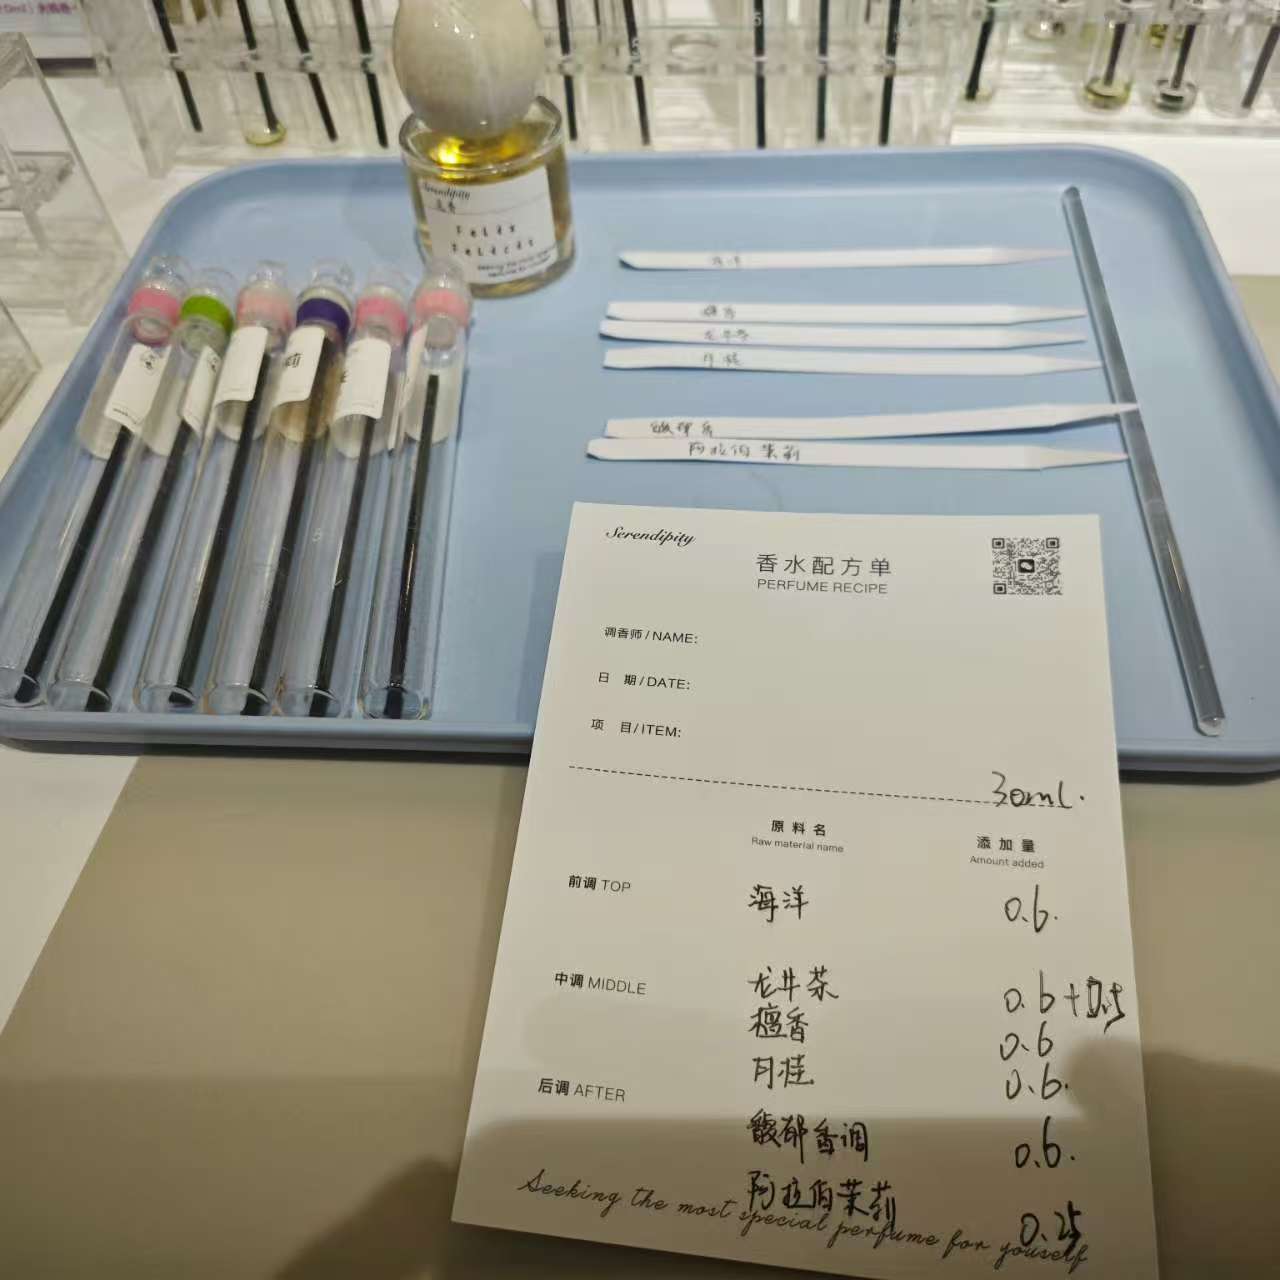 Serendipity
Felix
Felices
龙井茶
月桂
阿拉伯茉莉
莉
Serendipity
香水配方单
PERFUME RECIPE
调香师/NAME:
日 期/DATE:
项 目/ITEM:
30ml.
原料名 添加量
Raw material name Amount added
前调 TOP 海洋 0.6.
中调 MIDDLE 龙井茶 0.6+0.5
檀香 0.6
月桂 0.6.
后调 AFTER
馥郁香调 0.6.
阿拉伯茉莉 0.25
Seeking the most special perfume for youself